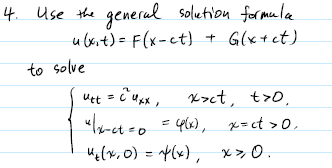 4. Use the general solution formula
u(x,t) = F(x-ct) + G(x+ct)
to solve
utt = c²uxx, x>ct, t>0,
u|x-ct=0 = φ(x), x=ct>0,
ut(x,0) = ψ(x), x≥0.